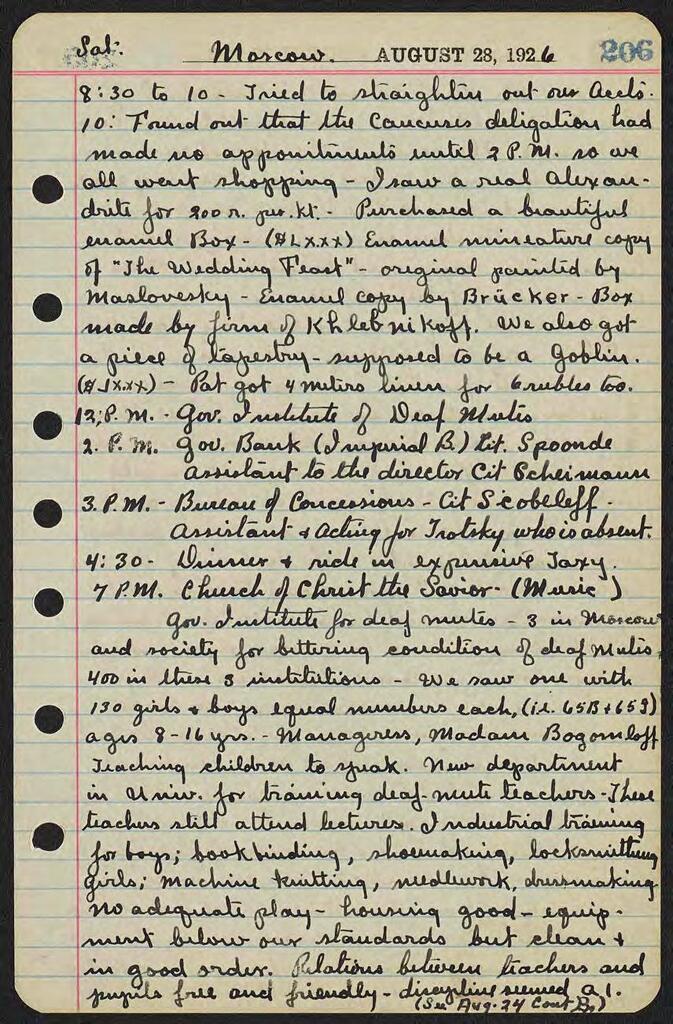 Sat. Moscow. AUGUST 28, 1926 206
8:30 to 10 - Tried to straighten out our Accts.
10: Found out that the Caucuses deligation had
made no appointments until 2 P.M. so we
all went shopping - I saw a real Alexan-
drite for 200 r. per. kt. - Purchased a beautiful
enamel Box - ($Lxxx) Enamel mineature copy
of "The Wedding Feast" - original painted by
Maslovesky - Enamel copy by Brücker - Box
made by firm of Khlebnikoff. We also got
a piece of tapestry - supposed to be a Goblin.
- Pat got 4 meters linen for 6 rubles too.
12; P.M. - Gov. Institute of Deaf Mutes
2. P.M. Gov. Bank (Imperial B.) Cit. Spoonde
assistant to the director Cit Scheimann
3. P.M. - Bureau of Concessions - Cit Scobeleff -
Assistant & Acting for Trotsky who is absent.
4:30 - Dinner & ride in expensive Taxy.
7 P.M. Church of Christ the Savior - (Music)
Gov. Institute for deaf mutes - 3 in Moscow
and society for bettering condition of deaf mutes,
400 in these 3 institutions - We saw one with
130 girls & boys equal numbers each, (i.e. 65B + 65G)
ages 8-16 yrs. - Manageress, Madam Bogomloff
Teaching children to speak. New department
in Univ. for training deaf-mute teachers - These
teachers still attend lectures. Industrial training
for boys; bookbinding, shoemaking, locksmithing
girls; machine knitting, needlework, dressmaking
No adequate play - housing good - equip-
ment below our standards but clean &
in good order. Relations between teachers and
pupils free and friendly - discipline seemed a 1.
(See Aug. 24 Cont)